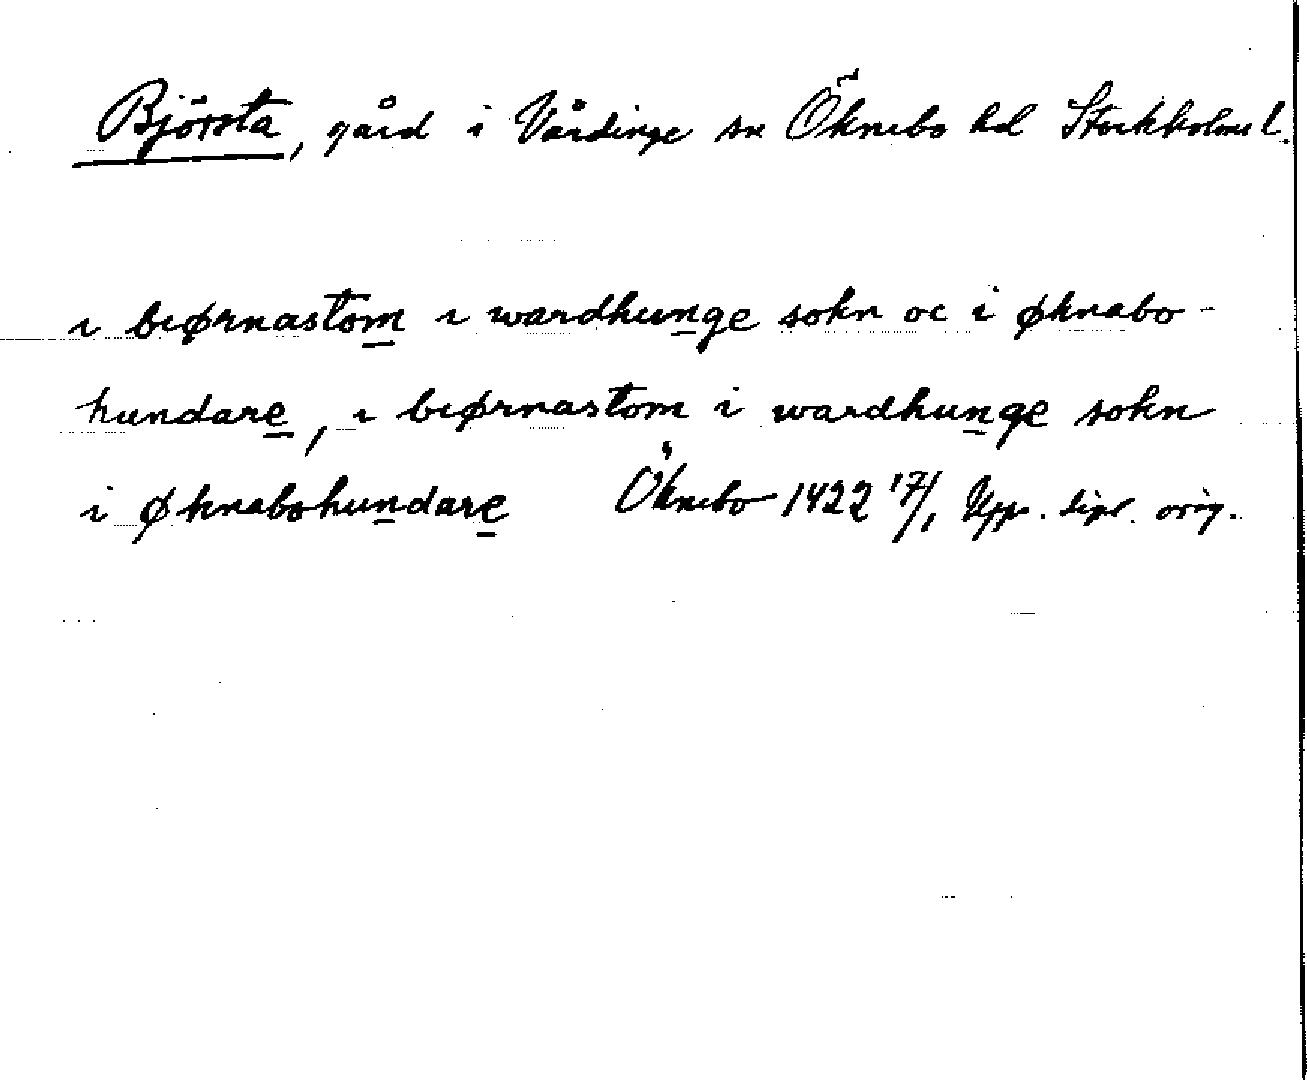 Björsta, gård i Vårdinge sn Öknebo hd Stockholms l.
i biørnastom i wardhunge sokn oc i øknabo-
hundare, i biørnastom i wardhunge sokn
i øknabohundare Öknebo 1422 17/1 Upps. dipl. orig.